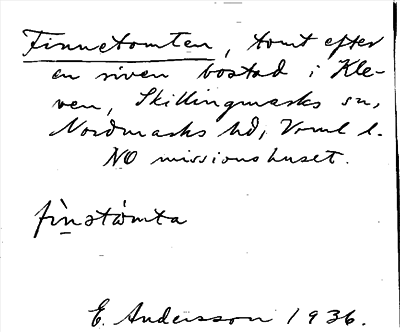 Finnetomten, tomt efter
en riven bostad i Kle-
ven, Skillingmarks sn,
Nordmarks hd, Vrml l.
NO missionshuset.
fìnətòmta
E. Andersson 1936.